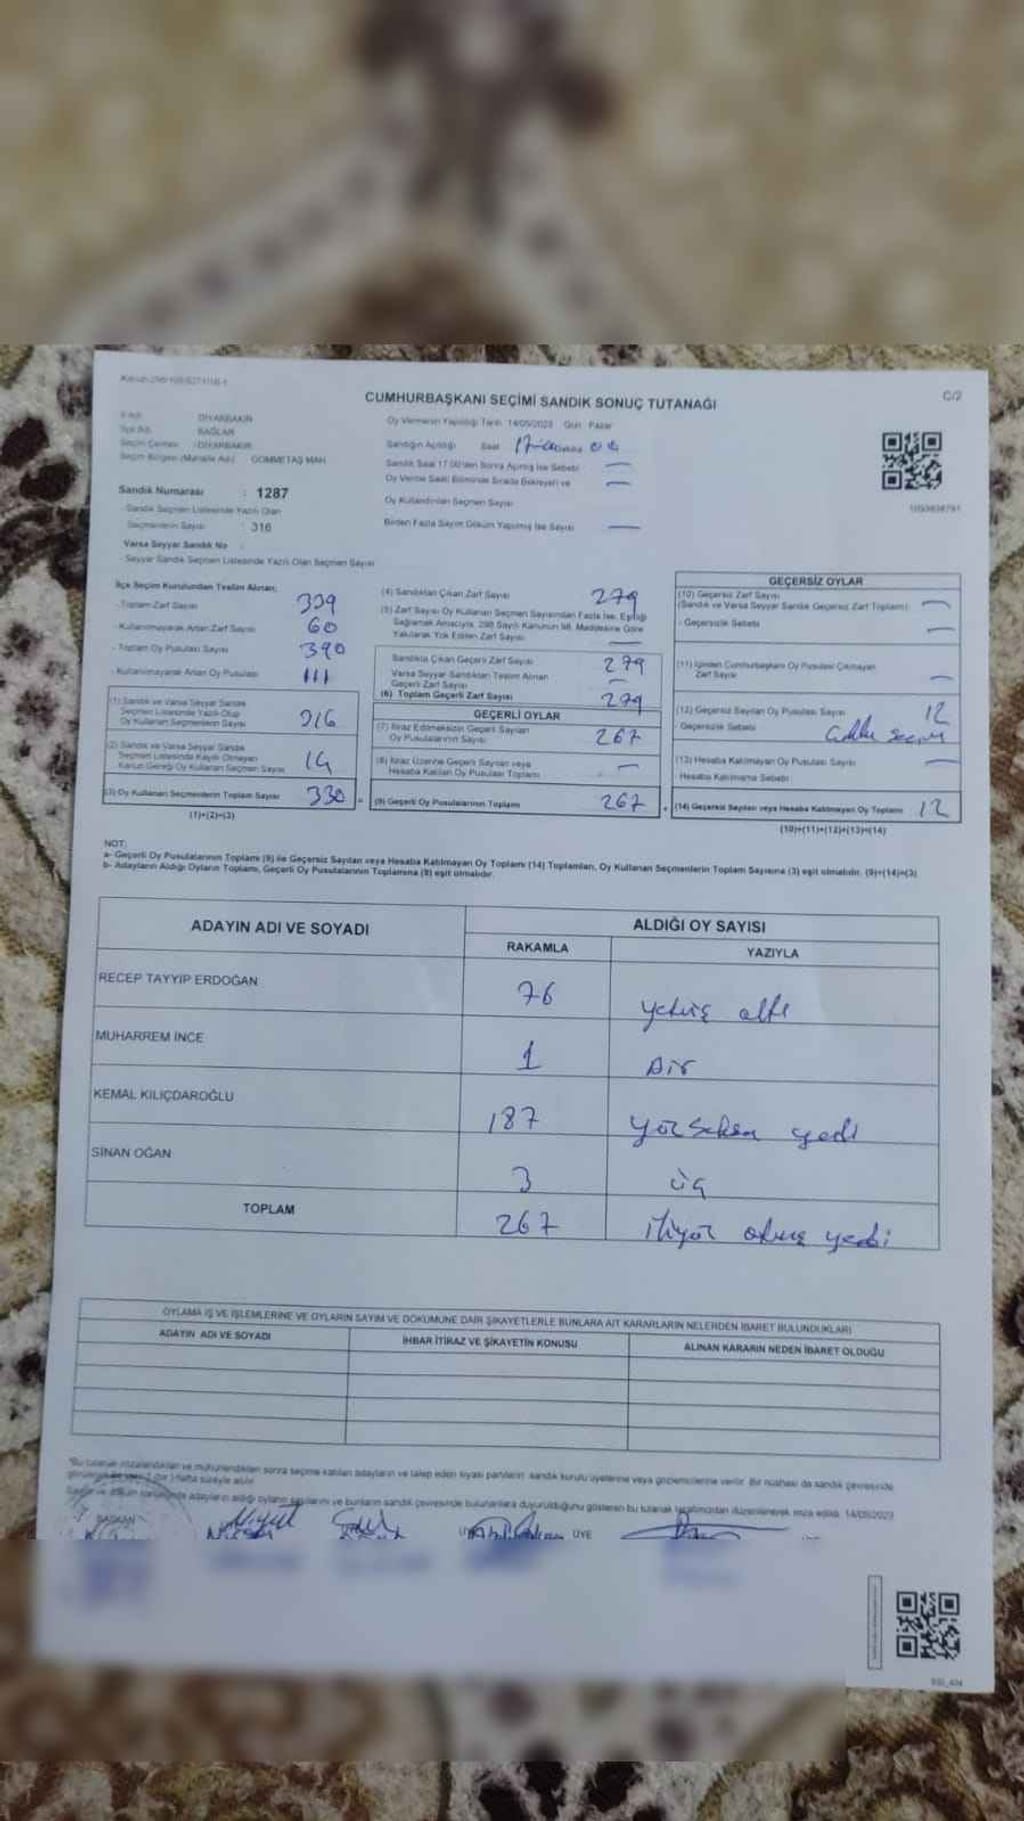 CUMHURBAŞKANI SEÇİMİ SANDIK SONUÇ TUTANAĞI
C/2
İl Adı : DİYARBAKIR
İlçe Adı : BAĞLAR
Seçim Çevresi : DİYARBAKIR
Seçim Bölgesi (Mahalle Adı) : GÖMMETAŞ MAH.
Oy Vermenin Yapıldığı Tarih 14/05/2023 Gün Pazar
Sandığın Açıldığı Saat
Sandık Saat 17.00'den Sonra Açılmış İse Sebebi —
Oy Verme Saati Bitiminde Sırada Bekleyen ve —
Oy Kullandırılan Seçmen Sayısı
Birden Fazla Sayım Döküm Yapılmış İse Sayısı —
Sandık Numarası : 1287
- Sandık Seçmen Listesinde Yazılı Olan
Seçmenlerin Sayısı : 316
Varsa Seyyar Sandık No :
- Seyyar Sandık Seçmen Listesinde Yazılı Olan Seçmen Sayısı
İlçe Seçim Kurulundan Teslim Alınan;
- Toplam Zarf Sayısı 339
- Kullanılmayarak Artan Zarf Sayısı 60
- Toplam Oy Pusulası Sayısı 390
- Kullanılmayarak Artan Oy Pusulası 111
(1) Sandık ve Varsa Seyyar Sandık
Seçmen Listesinde Yazılı Olup
Oy Kullanan Seçmenlerin Sayısı 316
(2) Sandık ve Varsa Seyyar Sandık
Seçmen Listesinde Kayıtlı Olmayan
Kanun Gereği Oy Kullanan Seçmen Sayısı 14
(3) Oy Kullanan Seçmenlerin Toplam Sayısı 330
(1)+(2)=(3)
(4) Sandıktan Çıkan Zarf Sayısı 279
(5) Zarf Sayısı Oy Kullanan Seçmen Sayısından Fazla İse, Eşitliği
Sağlamak Amacıyla, 298 Sayılı Kanunun 98. Maddesine Göre
Yakılarak Yok Edilen Zarf Sayısı —
Sandıkta Çıkan Geçerli Zarf Sayısı 279
Varsa Seyyar Sandıktan Teslim Alınan
Geçerli Zarf Sayısı —
(6) Toplam Geçerli Zarf Sayısı 279
GEÇERLİ OYLAR
(7) İtiraz Edilmeksizin Geçerli Sayılan
Oy Pusulalarının Sayısı 267
(8) İtiraz Üzerine Geçerli Sayılan veya
Hesaba Katılan Oy Pusulası Toplamı —
(9) Geçerli Oy Pusulalarının Toplamı 267
GEÇERSİZ OYLAR
(10) Geçersiz Zarf Sayısı
(Sandık ve Varsa Seyyar Sandık Geçersiz Zarf Toplamı) —
- Geçersizlik Sebebi —
(11) İçinden Cumhurbaşkanı Oy Pusulası Çıkmayan
Zarf Sayısı —
(12) Geçersiz Sayılan Oy Pusulası Sayısı 12
- Geçersizlik Sebebi
(13) Hesaba Katılmayan Oy Pusulası Sayısı —
Hesaba Katılmama Sebebi
(14) Geçersiz Sayılan veya Hesaba Katılmayan Oy Toplamı 12
(10)+(11)+(12)+(13)=(14)
NOT:
a- Geçerli Oy Pusulalarının Toplamı (9) ile Geçersiz Sayılan veya Hesaba Katılmayan Oy Toplamı (14) Toplamları, Oy Kullanan Seçmenlerin Toplam Sayısına (3) eşit olmalıdır. (9)+(14)=(3)
b- Adayların Aldığı Oyların Toplamı, Geçerli Oy Pusulalarının Toplamına (9) eşit olmalıdır.
ADAYIN ADI VE SOYADI ALDIĞI OY SAYISI
RAKAMLA YAZIYLA
RECEP TAYYİP ERDOĞAN 76 yetmiş altı
MUHARREM İNCE 1 Bir
KEMAL KILIÇDAROĞLU 187 yüz seksen yedi
SİNAN OĞAN 3 üç
TOPLAM 267 ikiyüz altmış yedi
OYLAMA İŞ VE İŞLEMLERİNE VE OYLARIN SAYIM VE DÖKÜMÜNE DAİR ŞİKAYETLERLE BUNLARA AİT KARARLARIN NELERDEN İBARET BULUNDUKLARI
ADAYIN ADI VE SOYADI İHBAR İTİRAZ VE ŞİKAYETİN KONUSU ALINAN KARARIN NEDEN İBARET OLDUĞU
BAŞKAN
ÜYE